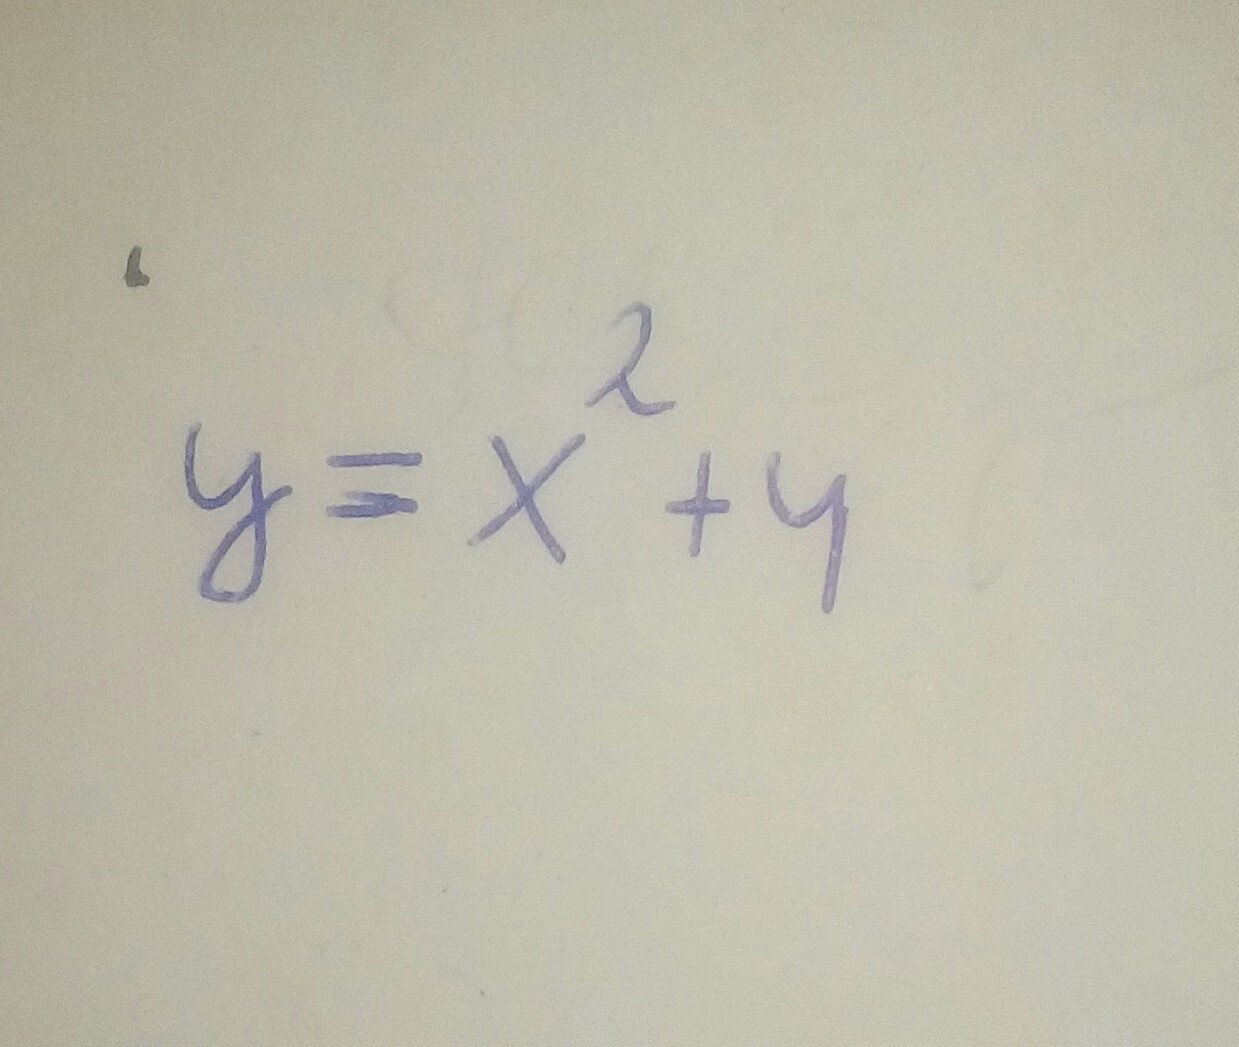 y = x² + 4